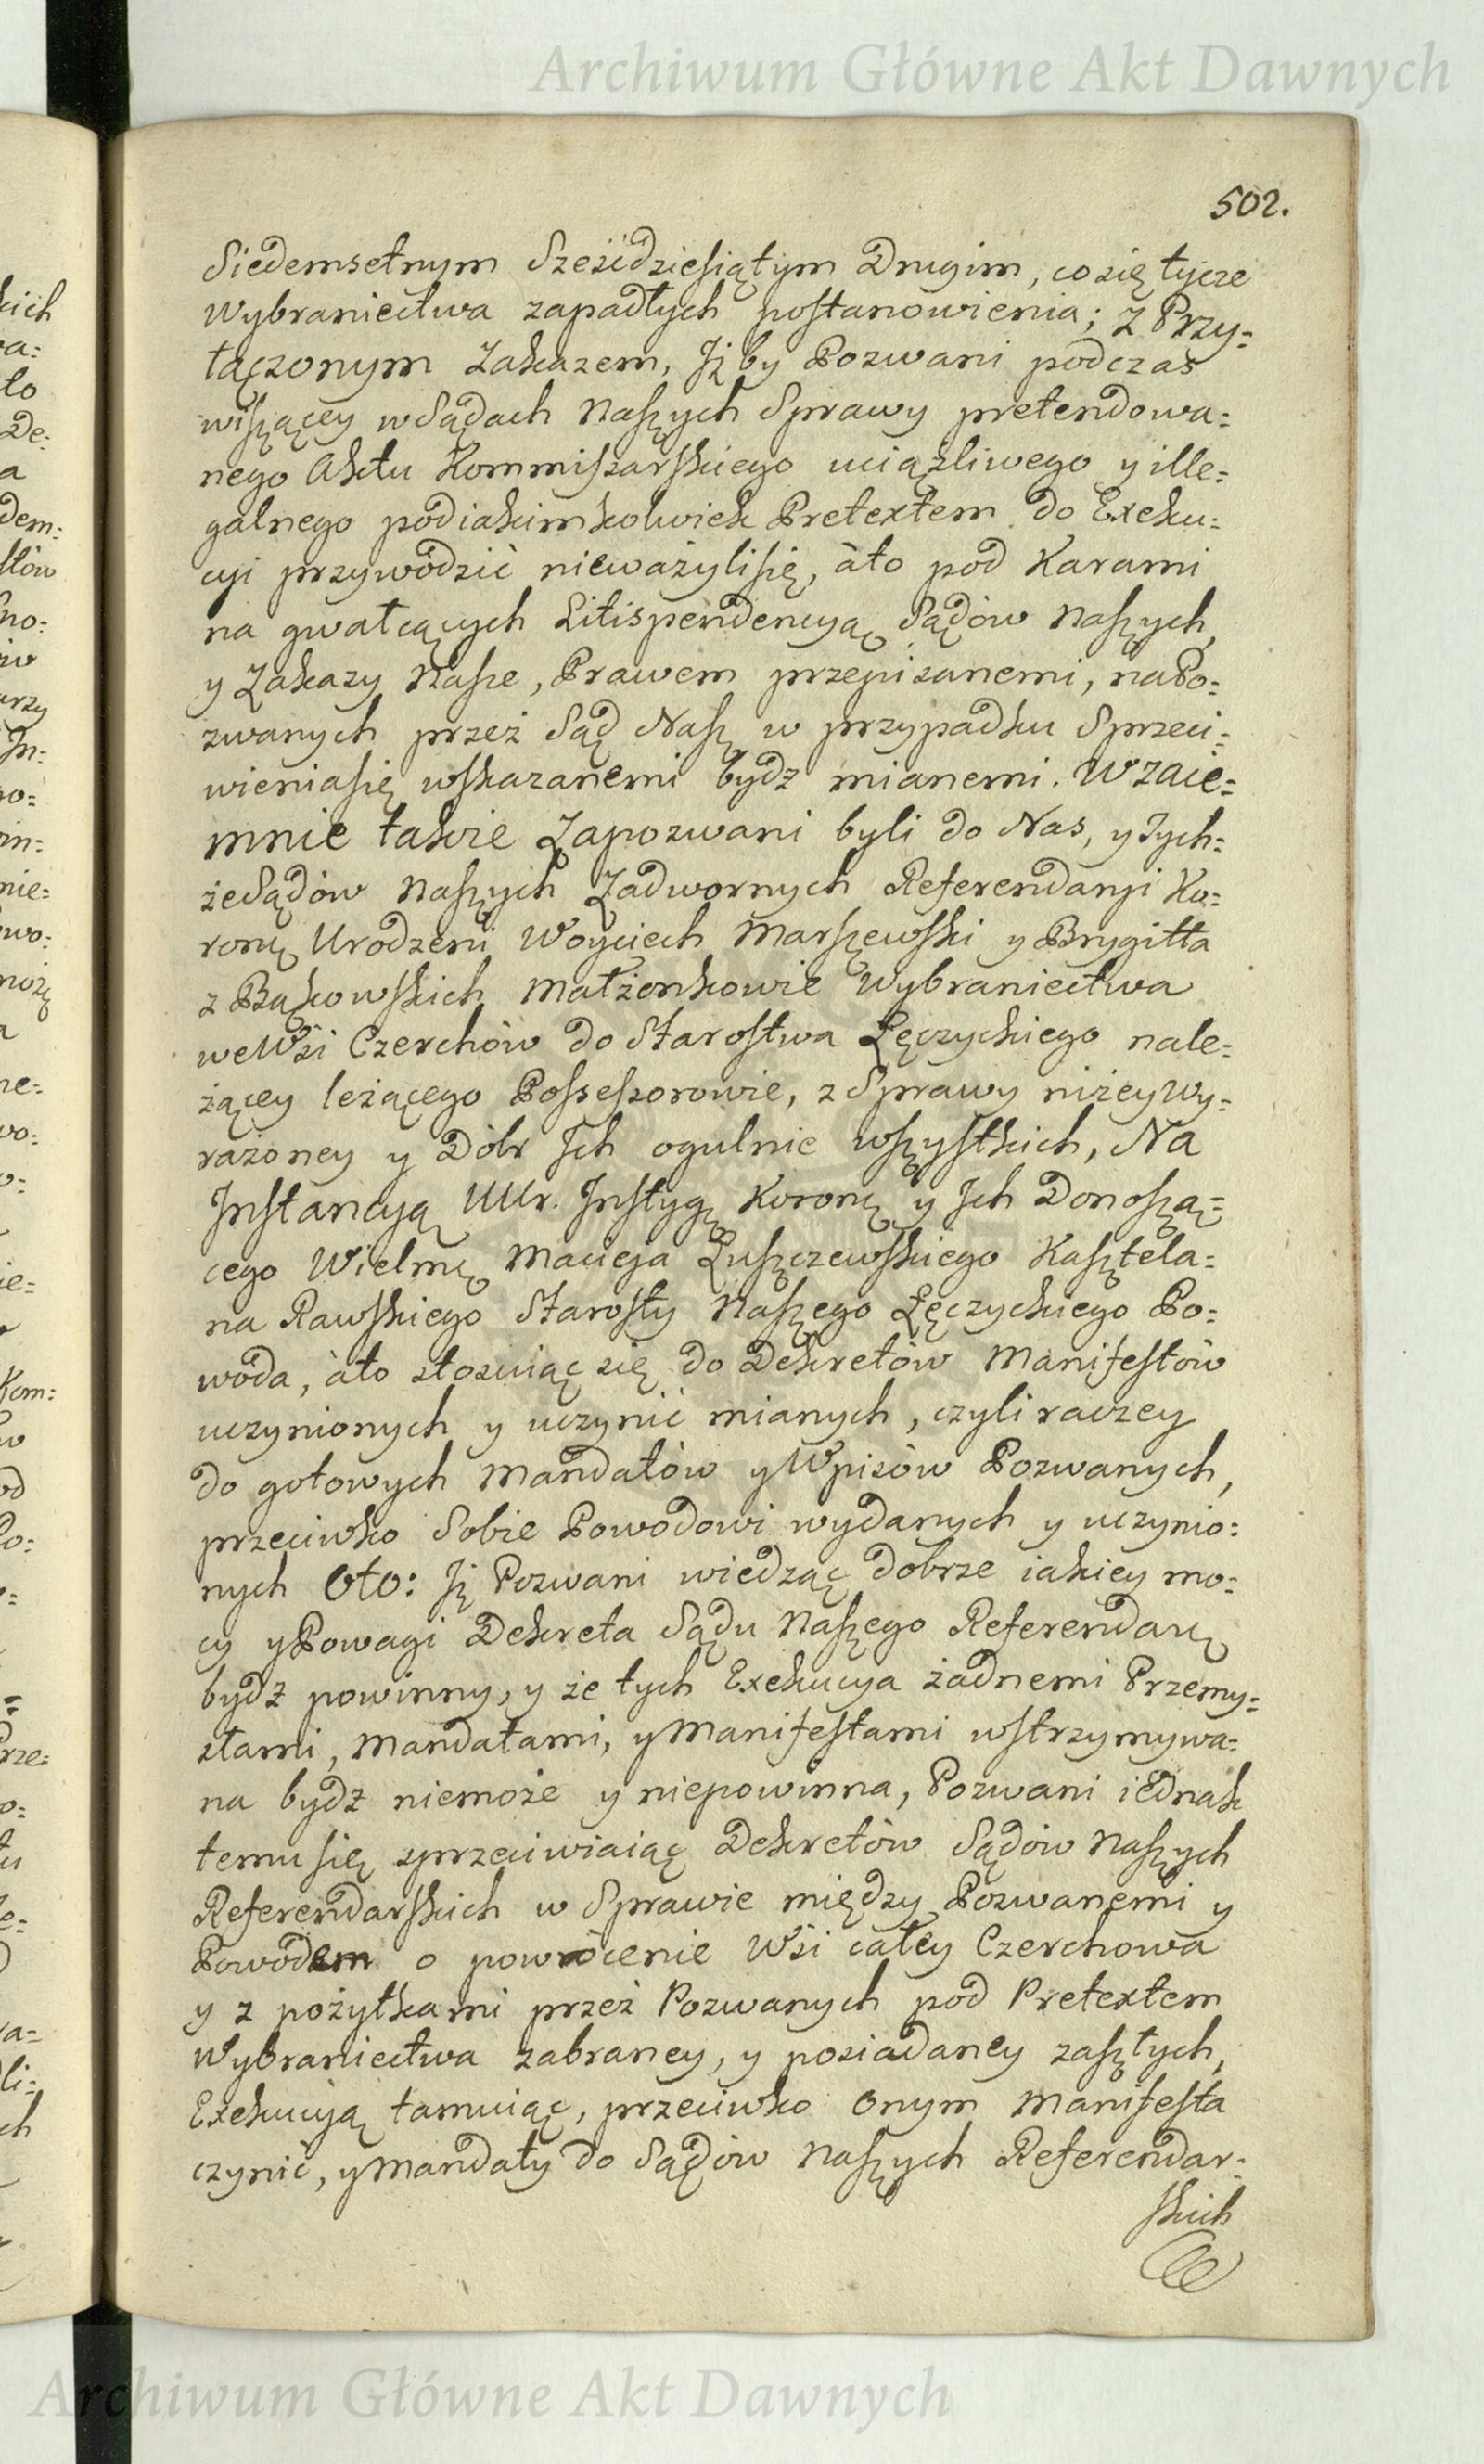 Archiwum Główne Akt Dawnych
502.
Siedemsetnym Sześćdziesiątym Drugim, co się tycze
Wybraniectwa zapadłych postanowienia; z Przy=
łączonym Zakazem, Jż by Pozwani podczas
wiszącey w Sądach Naszych Sprawy pretendowa=
nego Aktu Kommissarskiego uciążliwego y ille=
galnego pod iakimkolwiek Pretextem do Exeku=
cyi przywodzić nieważyli się, àto pod Karami
na gwałcących Litispendencyą Sądów Naszych,
y Zakazy Nasze, Prawem przepisanemi, na Po=
zwanych przez Sąd Nasz w przypadku Sprzeci=
wienia się wskazanemi bydz mianemi. Wzaie=
mnie także Zapozwani byli do Nas, y Tych=
że Sądów Naszych Zadwornych Referendaryi Ko=
ronę Urodzeni Woyciech Marszewski y Brygitta
z Bąkowskich Małżonkowie Wybraniectwa
we Wsi Czerchów do Starostwa Łęczyckiego nale=
żącey leżącego Possessorowie, z Sprawy niżey wy=
rażoney y Dóbr Jch ogulnie wszystkich, Na
Jnstancyą UUr. Jnstygę Koronę y Jch Donoszą=
cego Wielmę Macieja Łuszczewskiego Kasztela=
na Rawskiego Starosty Naszego Łęczyckiego Po=
woda, àto stosuiąc się do Dekretów Manifestów
uczynionych y uczynić mianych, czyli raczey
do gotowych Mandatów y Wpisów Pozwanych,
przeciwko Sobie Powodowi wydanych y uczynio=
nych Oto: Jż Pozwani wiedząc dobrze iakiey mo=
cy y Powagi Dekreta Sądu Naszego Referendarę
bydz powinny, y że tych Exekucya żadnemi Przemy=
słami, Mandatami, y Manifestami wstrzymywa=
na bydz niemoże y niepowinna, Pozwani iednak
temu się sprzeciwiaiąc Dekretów Sądów Naszych
Referendarskich w Sprawie między Pozwanemi y
Powodem o powrócenie Wsi całey Czerchowa
y z pożytkami przez Pozwanych pod Pretextem
Wybraniectwa zabraney, y posiadaney zaszłych,
Exekucyą tamuiąc, przeciwko Onym Manifesta
czynić, y Mandaty do Sądów Naszych Referendar=
skich
Archiwum Główne Akt Dawnych